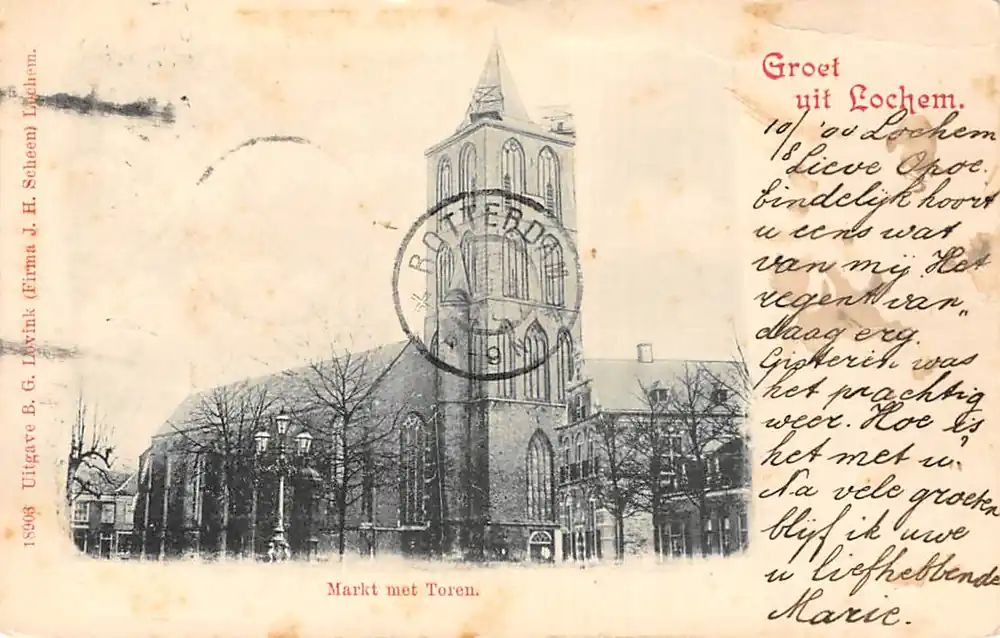 Groet
uit Lochem.
10/8 '00 Lochem
Lieve Opoe.
Eindelijk hoort
u eens wat
van mij Het
regent van„
daag erg.
Gisteren was
het prachtig
weer. Hoe is
het met u?
Na vele groeten
blijf ik uwe
u liefhebbende
Marie.
ROTTERDAM
9
Markt met Toren.
18903 Uitgave B. G. Lovink (Firma J. H. Scheen) Lochem.